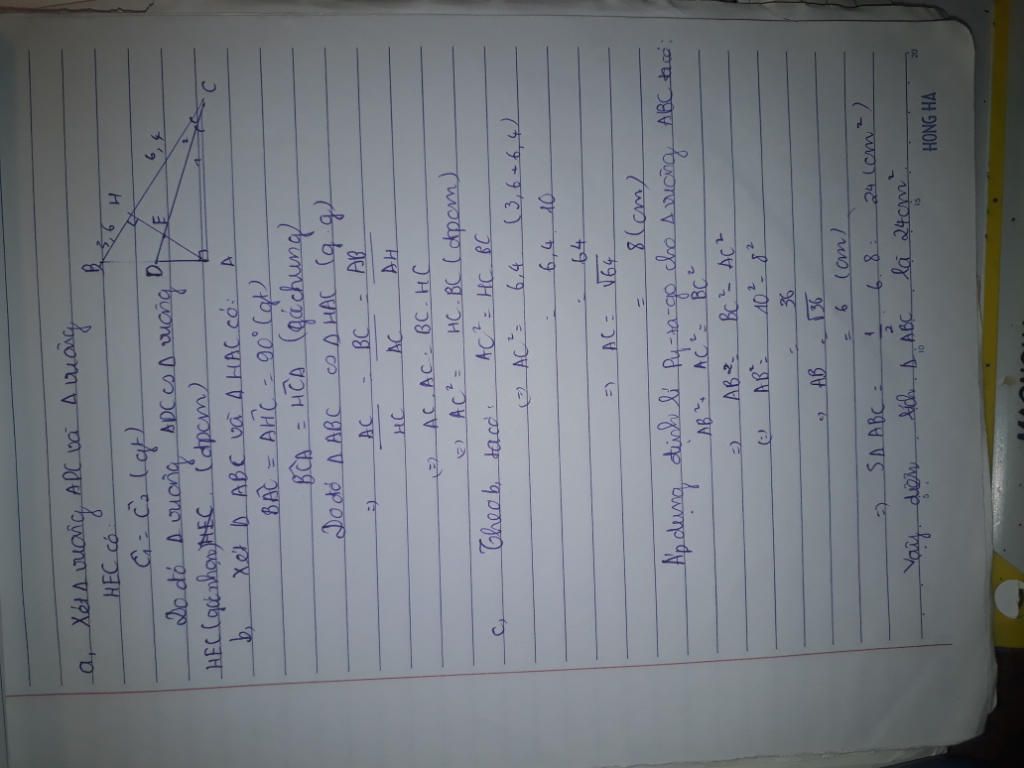 a, Xét Δ vuông ADC và Δ vuông
HEC có:
Ĉ₁ = Ĉ₂ (gt)
Do đó Δ vuông ADC ∽ Δ vuông
HEC (góc nhọn) HEC (đpcm)
B
3,6
H
6,4
C
D
E
1
2
A
b, Xét Δ ABC và Δ HAC có:
BÂC = AĤC = 90° (gt)
BĈA = HĈA (góc chung)
Do đó Δ ABC ∽ Δ HAC (g.g)
=> AC/HC = BC/AC = AB/AH
(=) AC.AC = BC.HC
(=) AC² = HC.BC (đpcm)
c, Theo b, ta có: AC² = HC.BC
(=) AC² = 6,4 (3,6+6,4)
= 6,4.10
= 64
=) AC = √64
= 8 (cm)
Áp dụng định lí Py-ta-go cho Δ vuông ABC có:
AB² + AC² = BC²
=) AB² = BC² - AC²
(=) AB² = 10² - 8²
= 36
=) AB = √36
= 6 (cm)
=) SΔABC = 1/2 6.8 = 24 (cm²)
Vậy diện tích Δ ABC là 24cm²
5 10 15 20
HONG HA